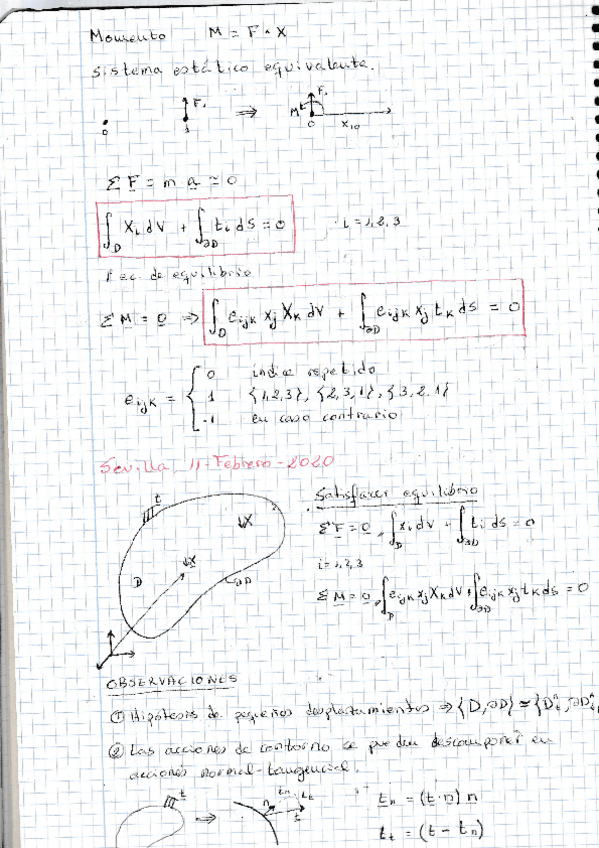 Momento M = F · X
Sistema estático equivalente.
F₁ ⇒ M F₁
0 1 0 x₁₀
Σ F = m a ≃ 0
∫_D Xᵢ dV + ∫_∂D tᵢ dS = 0 i = 1,2,3
ec. de equilibrio
Σ M = 0 ⇒ ∫_D eᵢⱼₖ xⱼ Xₖ dV + ∫_∂D eᵢⱼₖ xⱼ tₖ ds = 0
0 indice repetido
eᵢⱼₖ = { 1 {1,2,3}, {2,3,1}, {3,2,1}
-1 en caso contrario
Sevilla, 11-Febrero-2020
Satisfacer equilibrio
t
X
Σ F = 0, ∫_D Xᵢ dV + ∫_∂D tᵢ ds = 0
i = 1,2,3
D x ∂D
Σ M = 0, ∫_D eᵢⱼₖ xⱼ Xₖ dV + ∫_∂D eᵢⱼₖ xⱼ tₖ ds = 0
OBSERVACIONES
① Hipótesis de pequeños desplazamientos ⇒ {D, ∂D} ≃ {D
② Las acciones de contorno se pueden descomponer en
acciones normal-tangencial.
t ⇒ n tₙ tₜ t
tₙ = (t · n) n
tₜ = (t - tₙ)